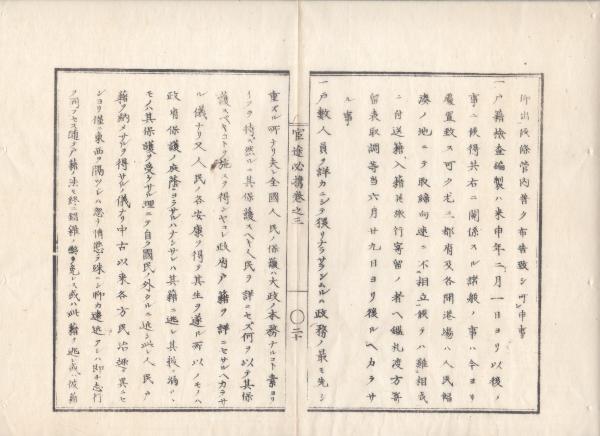 仰出候條管内普ク布告致シ可申事
一戸籍檢査編製ハ来申年二月一日ヨリ以後ノ
事ニ候得共右ニ関係スル諸般ノ事ハ今ヨリ
處置致ス可ク尤三都府及各開港場ハ人民輻
湊ノ地ニテ取締向速ニ不相立候テハ難相成
ニ付送籍入籍其旅行寄留ノ者ヘ鑑札渡方寄
留表取調等当六月廿九日ヨリ後ルヘカラサ
ル事
一戸數人員ヲ詳カニシテ猥リナラサラシムルハ政務ノ最モ先シ
官途必携巻之三
〇二十
重スル所ナリ夫レ全國人民ノ保護ハ大政ノ本務ナルコト素ヨリ
イフヲ待タス然ルニ其保護スヘキ人民ヲ詳ニセス何ヲ以テ其保
護スヘキコトヲ施スヲ得ンヤコレ政府戸籍ヲ詳ニセサルヘカラサ
ル儀ナリ又人民ノ各安康ヲ得テ其生ヲ遂ル所以ノモノハ
政府保護ノ庇蔭ニヨラサルハナシサレハ其籍ニ逃レ其数ニ漏ルヽ
モノハ其保護ヲ受ケサル理ニテ自ラ國民ノ外タルニ近シ此レ人民戸
籍ヲ納メサルヲ得サルノ儀ナリ中古以来各方民治趣ヲ異ニセ
シヨリ僅ニ東西ヲ隔ツレハ忽チ情態ヲ殊ニシ聊カ遠近アレハ即チ志行
ヲ同フセス随テ戸籍ノ法モ終ニ錯雜ノ弊ヲ免レス或ハ此籍ヲ逃レ或ハ彼籍